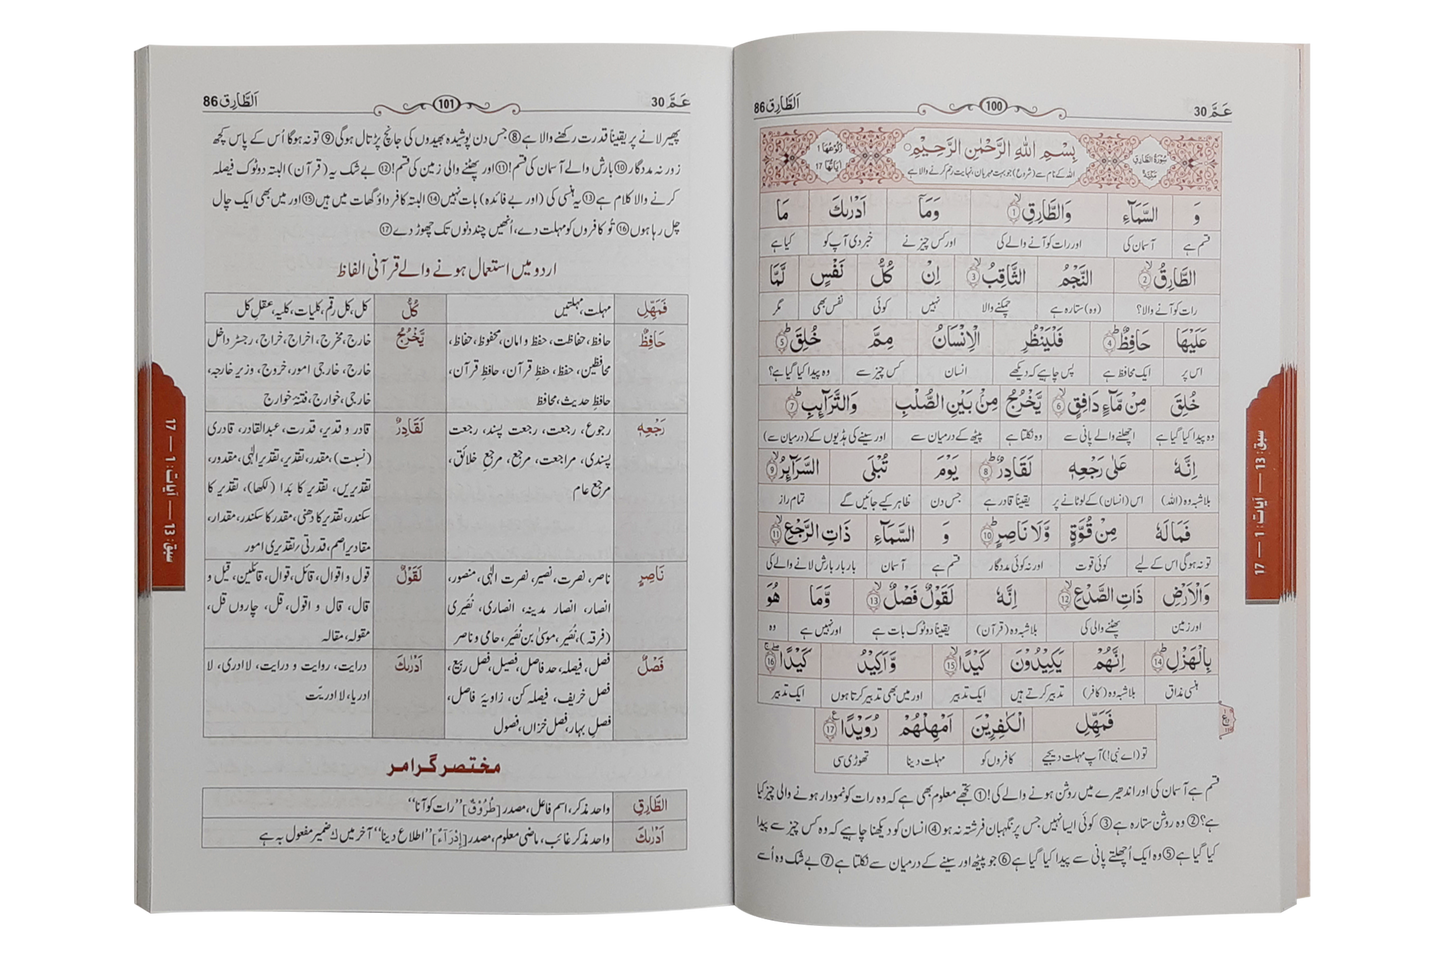 عَمَّ 30
100
اَلطَّارِق 86
سُوْرَةُ الطَّارِقِ
بِسْمِ اللّٰهِ الرَّحْمٰنِ الرَّحِيْمِ
اللہ کے نام سے (شروع) جو بہت مہربان، نہایت رحم کرنے والا ہے
اٰيَاتُهَا 17
وَ السَّمَآءِ وَالطَّارِقِ ۱ وَمَآ اَدْرٰىكَ مَا
قسم ہے آسمان کی اور رات کو آنے والے کی اور کس چیز نے خبر دی آپ کو کیا ہے
الطَّارِقُ ۲ النَّجْمُ الثَّاقِبُ ۳ اِنْ كُلُّ نَفْسٍ لَّمَّا
رات کو آنے والا؟ (وہ) ستارہ ہے چمکنے والا نہیں کوئی نفس بھی مگر
عَلَيْهَا حَافِظٌ ۴ فَلْيَنْظُرِ الْاِنْسَانُ مِمَّ خُلِقَ ۵
اس پر ایک محافظ ہے پس چاہیے کہ دیکھے انسان کس چیز سے وہ پیدا کیا گیا ہے؟
خُلِقَ مِنْ مَّآءٍ دَافِقٍ ۶ يَّخْرُجُ مِنْۢ بَيْنِ الصُّلْبِ وَالتَّرَآىِٕبِ ۷
وہ پیدا کیا گیا ہے اچھلنے والے پانی سے وہ نکلتا ہے پیٹھ کے درمیان سے اور سینے کی ہڈیوں کے (درمیان سے)
اِنَّهٗ عَلٰى رَجْعِهٖ لَقَادِرٌ ۸ يَوْمَ تُبْلَى السَّرَآىِٕرُ ۹
بلاشبہ وہ (اللہ) اس (انسان) کے لوٹانے پر یقیناً قادر ہے جس دن ظاہر کیے جائیں گے تمام راز
فَمَا لَهٗ مِنْ قُوَّةٍ وَّلَا نَاصِرٍ ۱۰ وَ السَّمَآءِ ذَاتِ الرَّجْعِ ۱۱
تو نہ ہوگی اس کے لیے کوئی قوت اور نہ کوئی مددگار قسم ہے آسمان بار بار بارش لانے والے کی
وَالْاَرْضِ ذَاتِ الصَّدْعِ ۱۲ اِنَّهٗ لَقَوْلٌ فَصْلٌ ۱۳ وَّمَا هُوَ
اور زمین پھٹنے والی کی بلاشبہ وہ (قرآن) یقیناً دوٹوک بات ہے اور نہیں ہے وہ
بِالْهَزْلِ ۱۴ اِنَّهُمْ يَكِيْدُوْنَ كَيْدًا ۱۵ وَّاَكِيْدُ كَيْدًا ۱۶
ہنسی مذاق بلاشبہ وہ (کافر) تدبیر کرتے ہیں ایک تدبیر اور میں بھی تدبیر کرتا ہوں ایک تدبیر
فَمَهِّلِ الْكٰفِرِيْنَ اَمْهِلْهُمْ رُوَيْدًا ۱۷
تو (اے نبی!) آپ مہلت دیجیے کافروں کو مہلت دینا تھوڑی سی
قسم ہے آسمان کی اور اندھیرے میں روشن ہونے والے کی! ① تجھے معلوم بھی ہے کہ وہ رات کو نمودار ہونے والی چیز کیا
ہے؟ ② وہ روشن ستارہ ہے ③ کوئی ایسا نہیں جس پر نگہبان فرشتہ نہ ہو ④ انسان کو دیکھنا چاہیے کہ وہ کس چیز سے پیدا
کیا گیا ہے ⑤ وہ ایک اُچھلتے پانی سے پیدا کیا گیا ہے ⑥ جو پیٹھ اور سینے کے درمیان سے نکلتا ہے ⑦ بے شک وہ اُسے
سبق: 13 — آیات: 1 — 17
عَمَّ 30
101
اَلطَّارِق 86
پھیر لانے پر یقیناً قدرت رکھنے والا ہے ⑧ جس دن پوشیدہ بھیدوں کی جانچ پڑتال ہوگی ⑨ تو نہ ہوگا اُس کے پاس کچھ
زور نہ مددگار ⑩ بارش والے آسمان کی قسم! ⑪ اور پھٹنے والی زمین کی قسم! ⑫ بے شک یہ (قرآن) البتہ دوٹوک فیصلہ
کرنے والا کلام ہے ⑬ یہ ہنسی کی (اور بے فائدہ) بات نہیں ⑭ البتہ کافر داؤ گھات میں ہیں ⑮ اور میں بھی ایک چال
چل رہا ہوں ⑯ تُو کافروں کو مہلت دے، اُنھیں چند دنوں تک چھوڑ دے ⑰
اردو میں استعمال ہونے والے قرآنی الفاظ
فَمَهِّلِ مہلت، مہلتیں كُلُّ کل، کل رقم، کلیات، کلیہ، عقلِ کل
حَافِظٌ حافظ، حفاظت، حفظ و امان، محفوظ، حفاظ، يَّخْرُجُ خارج، مخرج، اخراج، خراج، رجسٹر داخل
محافظین، حفظ، حفظِ قرآن، حافظِ قرآن، خارج، خارجی امور، خروج، وزیر خارجہ،
حافظِ حدیث، محافظ خارجی، خوارج، فتنۂ خوارج
رَجْعِهٖ رجوع، رجعت، رجعت پسند، رجعت لَقَادِرٌ قادر و قدیر، قدرت، عبدالقادر، قادری
پسندی، مراجعت، مرجع، مرجع خلائق، (نسبت)، مقدر، تقدیر، تقدیرِ الٰہی، مقدور،
مرجع عام تقدیریں، تقدیر کا بَدا (لکھا)، تقدیر کا
سکندر، تقدیر کا دھنی، مقدر کا سکندر، مقدار،
مقادیر اصم، قدرتی/تقدیری امور
نَاصِرٍ ناصر، نصرت، نصیر، نصرت الٰہی، منصور، لَقَوْلٌ قول و اقوال، قائل، قوال، قائلین، قیل و
انصار، انصار مدینہ، انصاری، نُصَیری قال، قال و اقول، قل، چاروں قل،
(فرقہ)، نُصَیر، موسیٰ بن نُصَیر، حامی و ناصر مقولہ، مقالہ
فَصْلٌ فصل، فیصلہ، حد فاصل، فصیل، فصل ربیع، اَدْرٰىكَ درایت، روایت و درایت، لاادری، لا
فصل خریف، فیصلہ کن، زاویۂ فاصل، ادریا، لا ادریت
فصل بہار، فصل خزاں، فصول
مختصر گرامر
الطَّارِقِ واحد مذکر، اسم فاعل، مصدر [طُرُوْقٌ] ”رات کو آنا“
اَدْرٰىكَ واحد مذکر غائب، ماضی معلوم، مصدر [اِدْرَآءٌ] ”اطلاع دینا“ آخر میں كَ ضمیر مفعول بہ ہے
سبق: 13 — آیات: 1 — 17